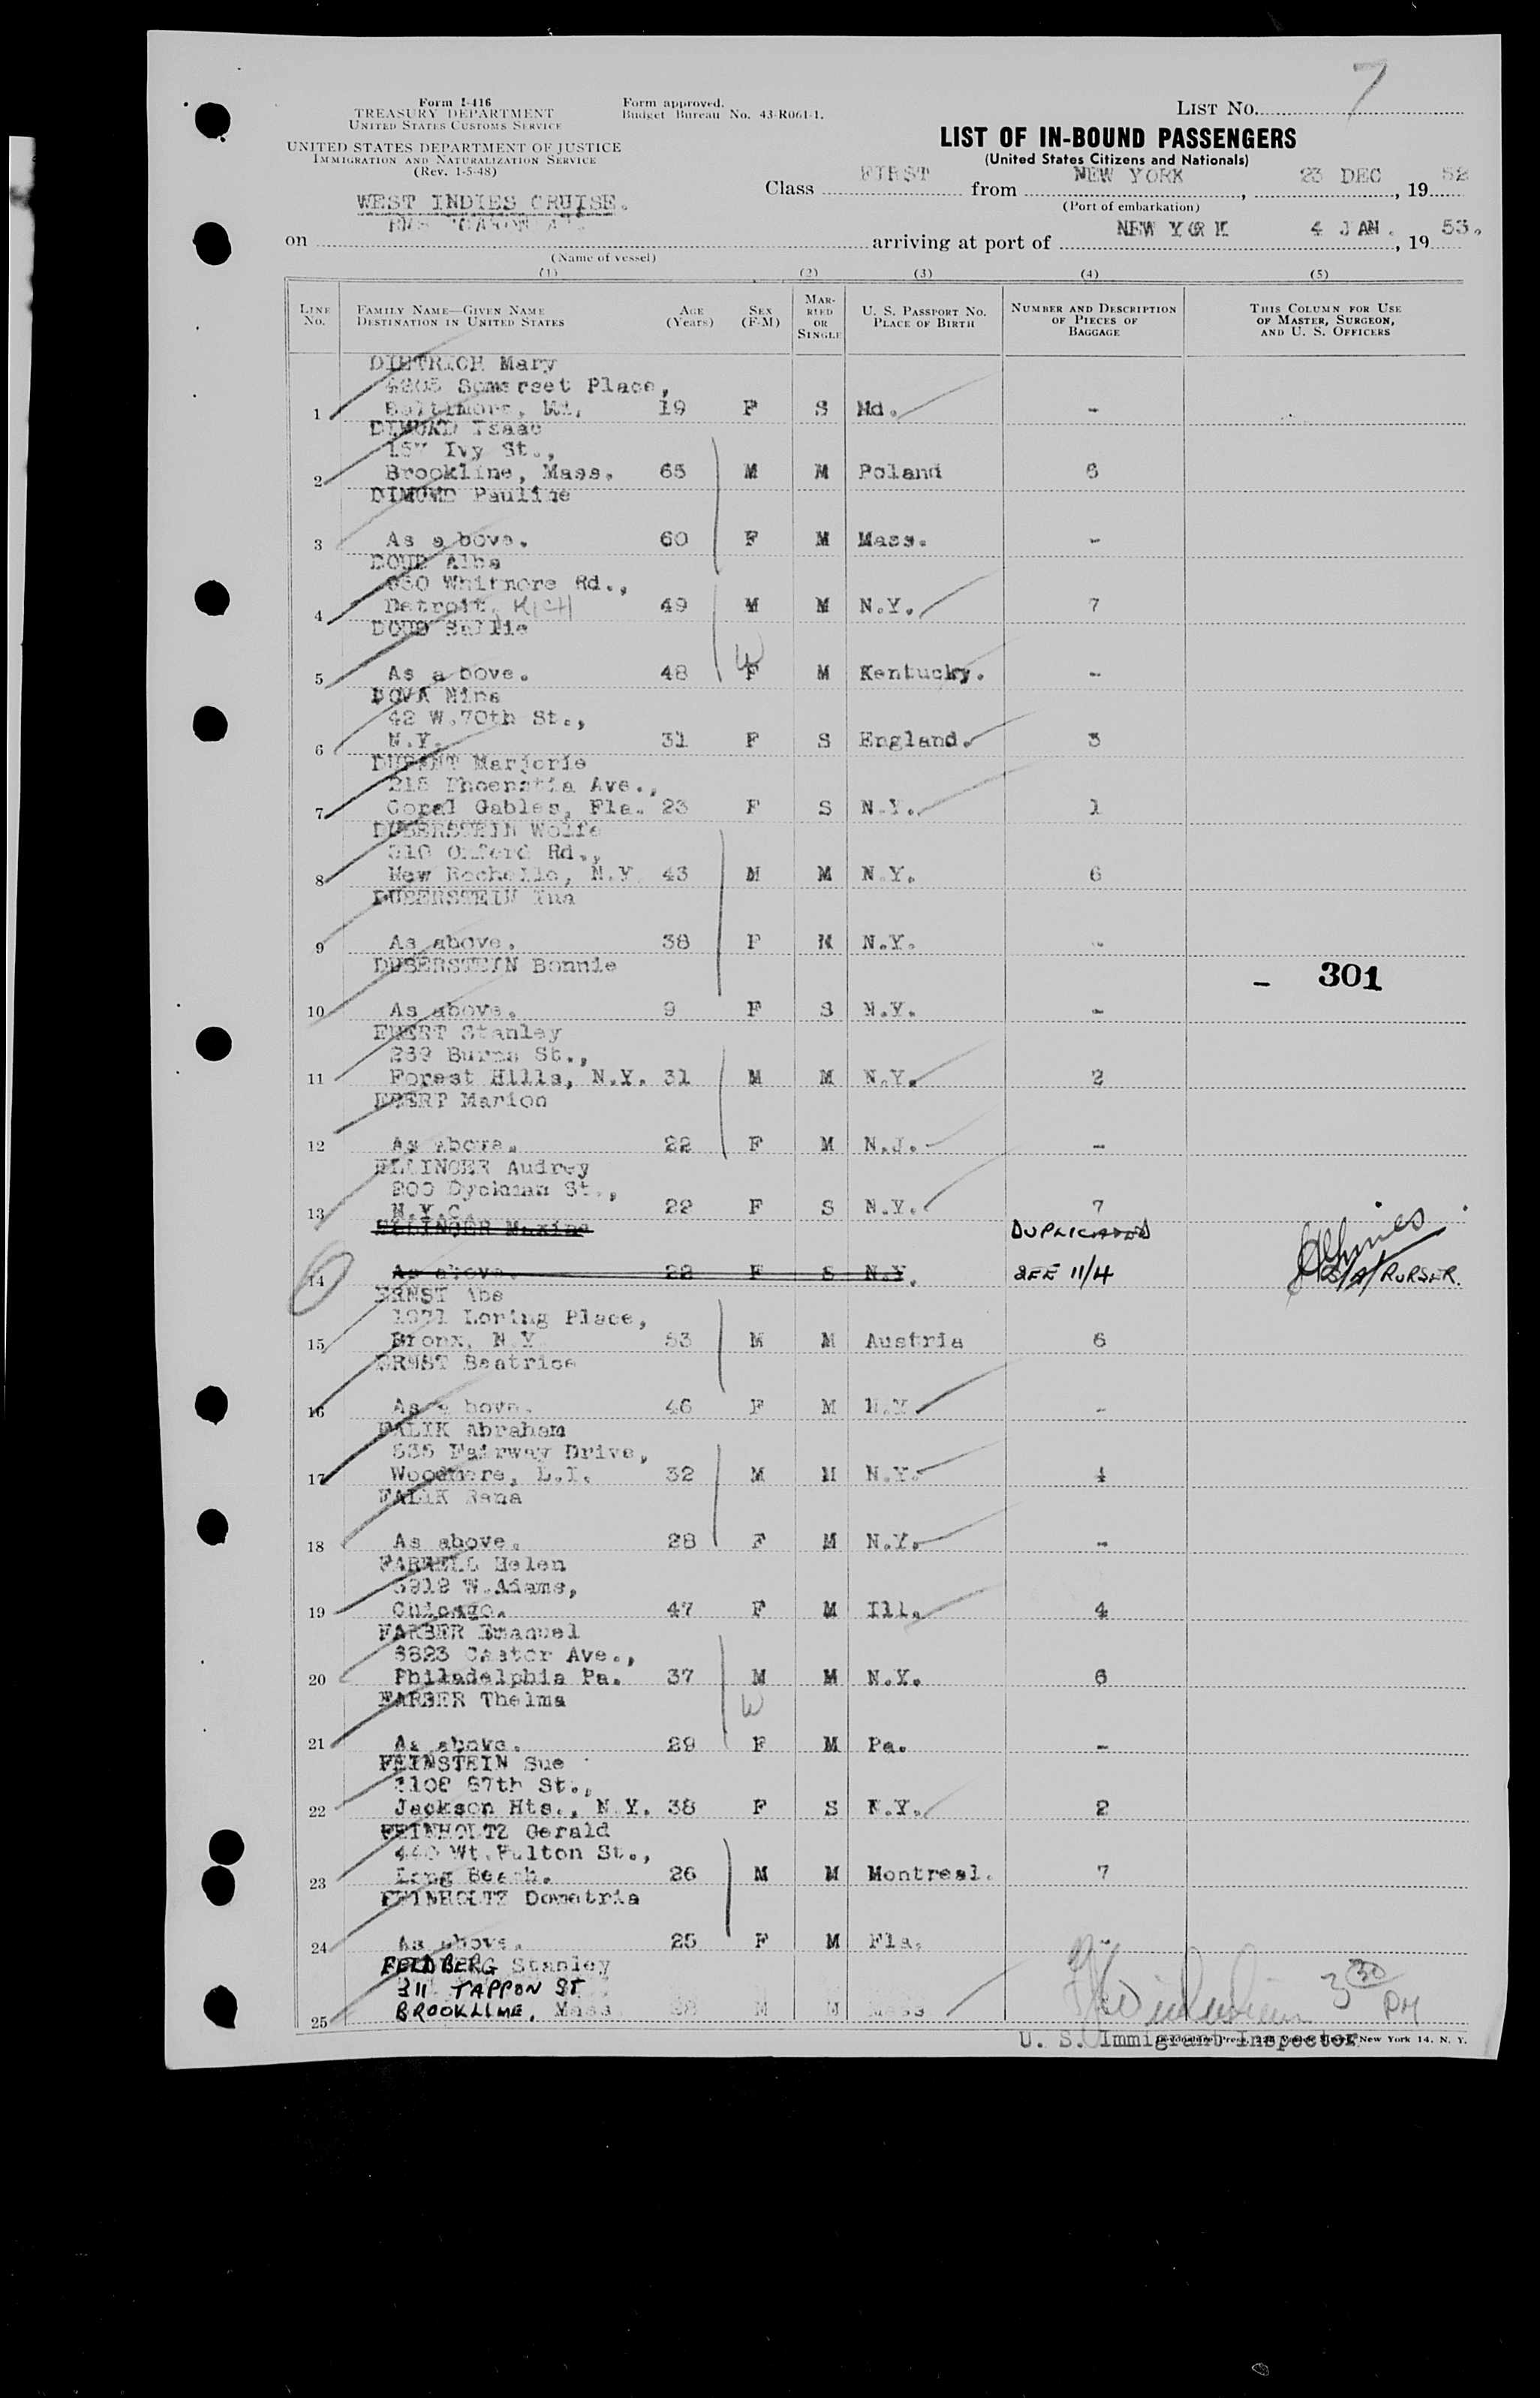 7
Form I-416
TREASURY DEPARTMENT
UNITED STATES CUSTOMS SERVICE
UNITED STATES DEPARTMENT OF JUSTICE
IMMIGRATION AND NATURALIZATION SERVICE
(Rev. 1-5-48)
Form approved.
Budget Bureau No. 43-R061-1.
LIST NO.
LIST OF IN-BOUND PASSENGERS
(United States Citizens and Nationals)
Class FIRST from NEW YORK, 23 DEC, 1952
(Port of embarkation)
WEST INDIES CRUISE.
on arriving at port of NEW YORK 4 JAN., 1953.
(Name of vessel)
(1) (2) (3) (4) (5)
LINE NO. FAMILY NAME—GIVEN NAME DESTINATION IN UNITED STATES AGE (Years) SEX (F-M) MARRIED OR SINGLE U. S. PASSPORT NO. PLACE OF BIRTH NUMBER AND DESCRIPTION OF PIECES OF BAGGAGE THIS COLUMN FOR USE OF MASTER, SURGEON, AND U. S. OFFICERS
DIETRICH Mary
4205 Somerset Place,
1 Baltimore, Md. 19 F S Md. -
DIMOND Isaac
157 Ivy St.,
2 Brookline, Mass. 65 M M Poland 6
DIMOND Pauline
3 As above. 60 F M Mass. -
DOUD Alba
Whitmore Rd.,
4 Detroit, MICH 49 M M N.Y. 7
DOUD Sallie
5 As above. 48 W F M Kentucky. -
DOVA Nina
42 W.70th St.,
6 N.Y. 31 F S England. 3
Marjorie
Ave.,
7 Coral Gables, Fla. 23 F S N.Y. 1
DUBERSTEIN Wolfe
310 Oxford Rd.,
8 New Rochelle, N.Y 43 M M N.Y. 6
DUBERSTEIN
9 As above. 38 F M N.Y. -
DUBERSTEIN Bonnie
- 301
10 As above. 9 F S N.Y. -
EBERT Stanley
239 Burns St.,
11 Forest Hills, N.Y. 31 M M N.Y. 2
EBERT Marion
12 As above. 22 F M N.J. -
ELLINGER Audrey
200 Dyckman St.,
13 N.Y.C. 22 F S N.Y. 7
ELLINGER Maxine DUPLICATED
14 As above. 22 F S N.Y. SEE 11/4 PURSER.
ERNST Abe
Loring Place,
15 Bronx, N.Y 53 M M Austria 6
ERNST Beatrice
16 As above. 46 F M N.Y. -
FALIK Abraham
835 Fairway Drive,
17 Woodmere, L.I. 32 M M N.Y. 4
FALIK Rena
18 As above. 28 F M N.Y. -
Helen
5912 W.Adams,
19 Chicago. 47 F M Ill. 4
FARBER Emanuel
6823 Castor Ave.,
20 Philadelphia Pa. 37 M M N.Y. 6
FARBER Thelma W
21 As above. 29 F M Pa. -
FEINSTEIN Sue
87th St.,
22 Jackson Hts., N.Y. 38 F S N.Y. 2
FEINHOLTZ Gerald
440 Wt.Fulton St.,
23 Long Beach. 26 M M Montreal. 7
FEINHOLTZ Dometria
24 As above. 25 F M Fla. -
FELDBERG Stanley
311 TAPPON ST
25 BROOKLINE, Mass 28 M M Mass
3 30 PM
U. S. Immigrant Inspector
New York 14, N. Y.